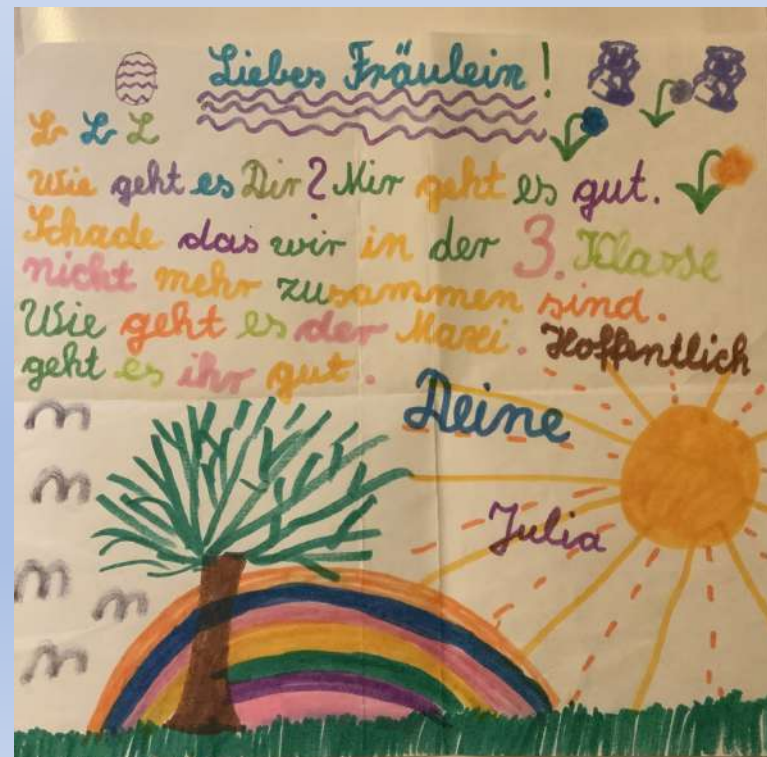 Liebes Fräulein!
L L L
Wie geht es Dir? Mir geht es gut.
Schade das wir in der 3. Klasse
nicht mehr zusammen sind.
Wie geht es der Maxi. Hoffentlich
geht es ihr gut.
Deine
Julia